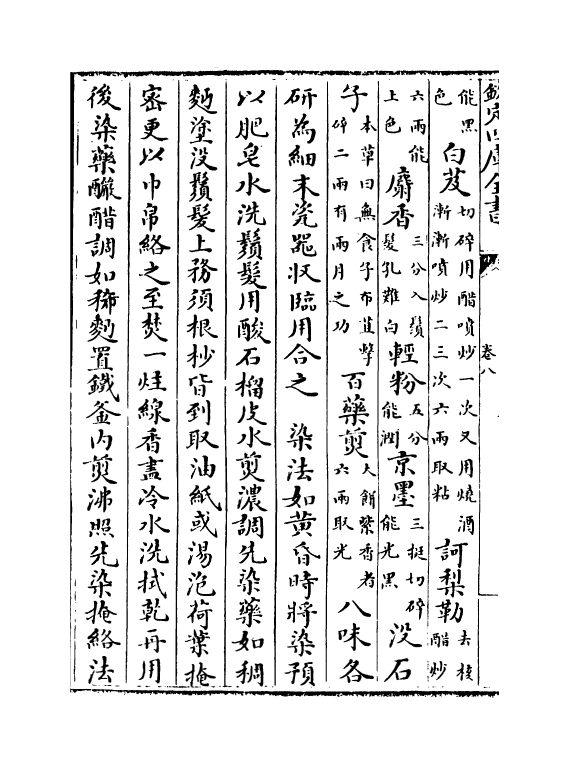 欽定四庫全書
卷八
能黑色 白芨 切碎用醋噴炒一次又用燒酒漸漸噴炒二三次六兩取粘 訶梨勒 去核醋炒
六兩能上色 麝香 三分入鬚髮孔難白 輕粉 五分能潤 京墨 三挺切碎能光黑 没石
子 本草曰無食子布苴擊碎二兩有兩月之功 百藥煎 大餅縏香者六兩取光 八味各
研為細末瓷器収臨用合之 染法如黄昏時將染預
以肥皂水洗鬚髮用酸石榴皮水煎濃調先染藥如稠
麪塗没鬚髮上務須根杪皆到取油紙或湯泡荷葉掩
密更以巾帛絡之至焚一炷線香盡冷水洗拭乾再用
後染藥釅醋調如稀麪置鐵釜内煎沸照先染掩絡法